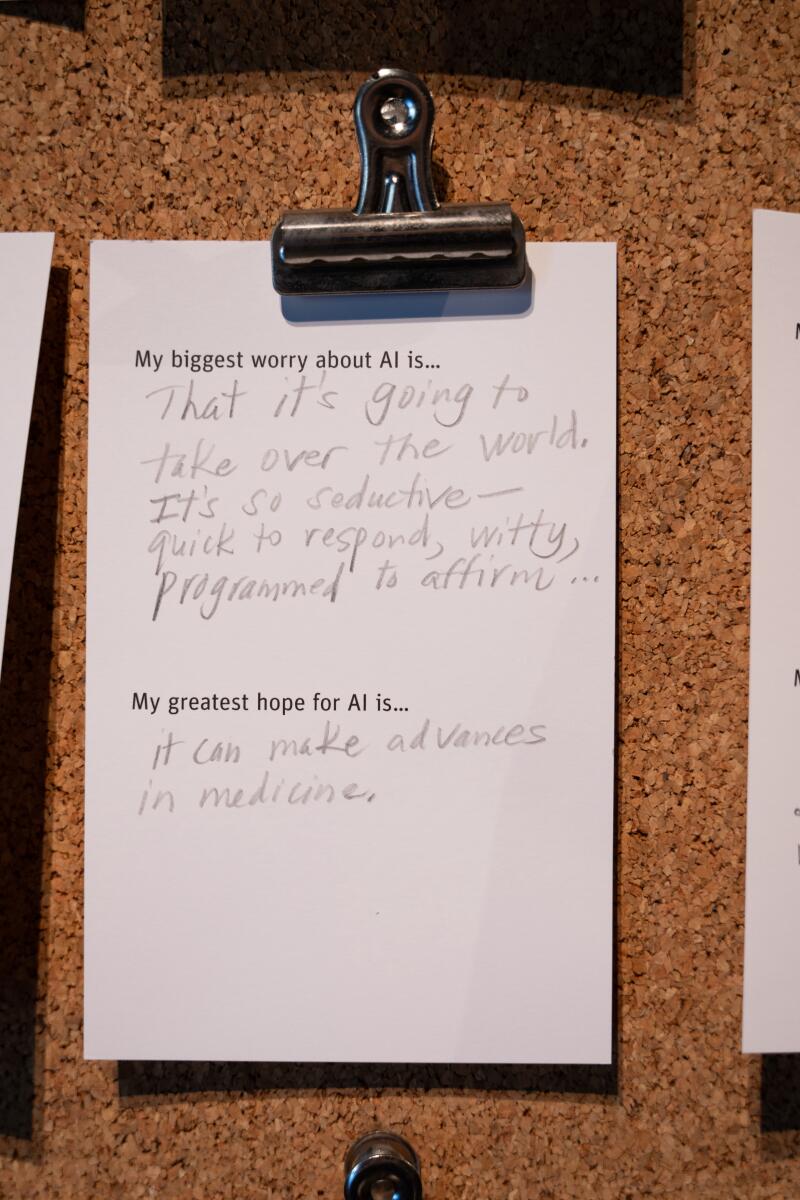 My biggest worry about AI is...
That it's going to
take over the world.
It's so seductive—
quick to respond, witty,
programmed to affirm...
My greatest hope for AI is...
it can make advances
in medicine.